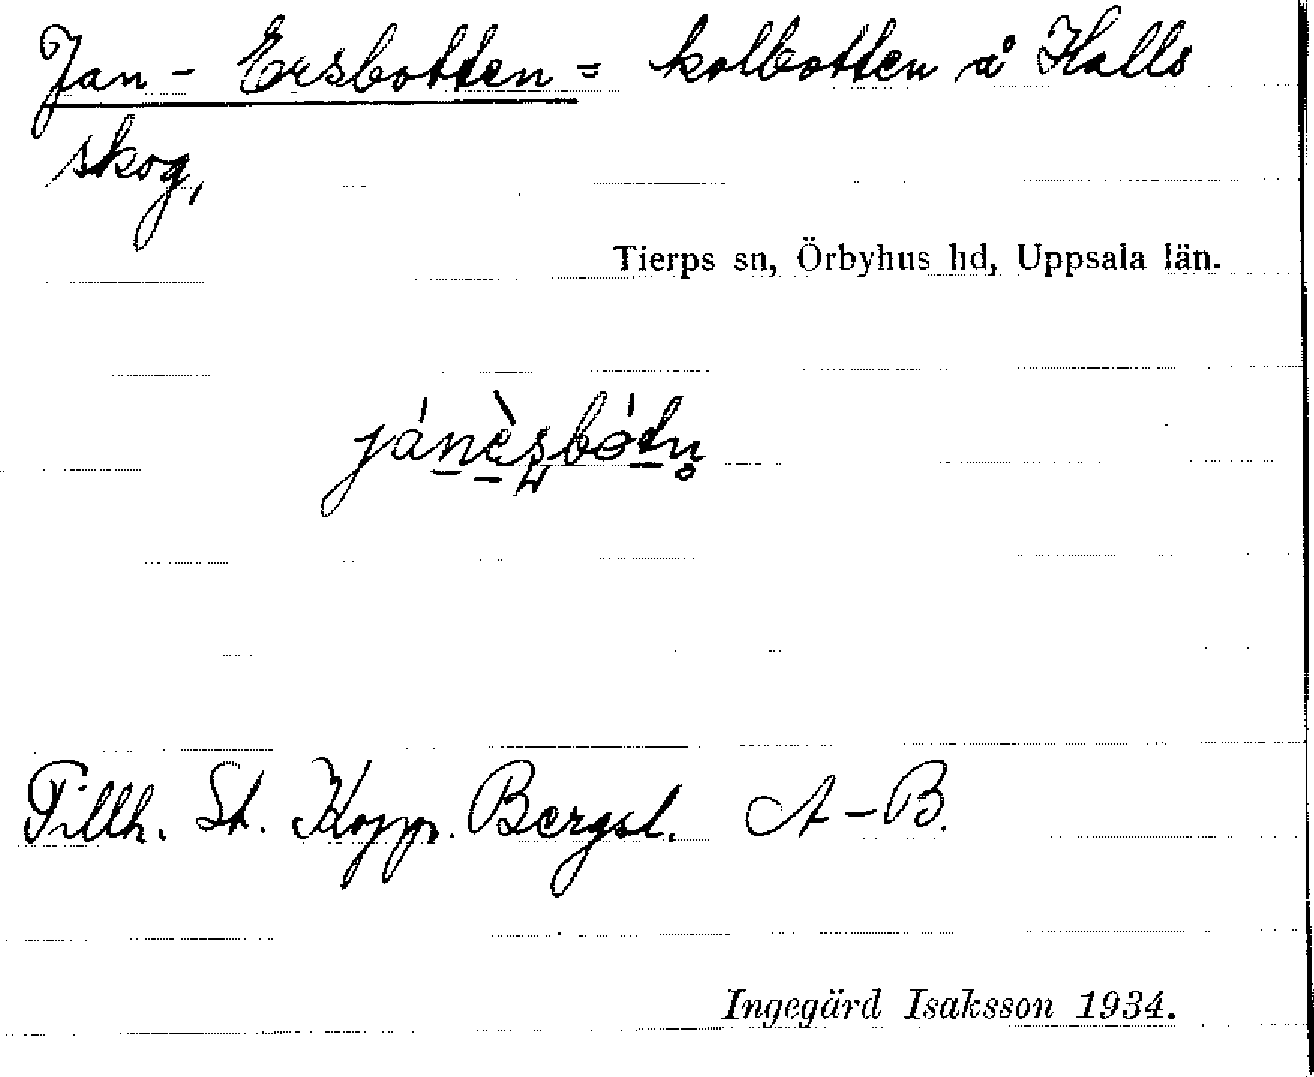 Jan-Ersbotten = kolbotten å Halls
skog,
Tierps sn, Örbyhus hd, Uppsala län.
Tillh. St. Kopp. Bergsl. A-B.
Ingegärd Isaksson 1934.